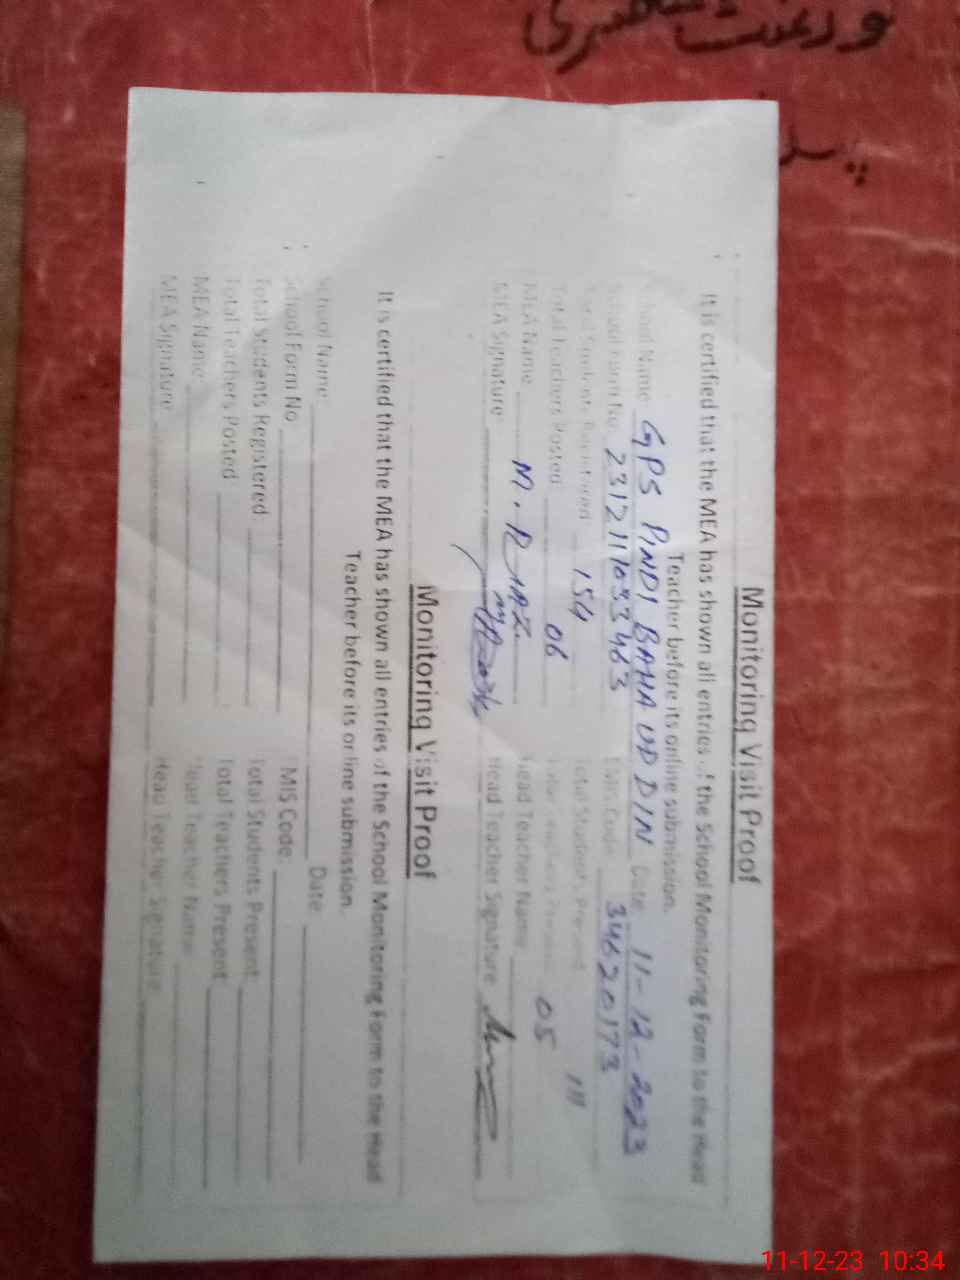 ورغنٹ
Monitoring Visit Proof
It is certified that the MEA has shown all entries of the School Monitoring Form to the Head
Teacher before its online submission.
School Name: GPS PINDI BAHA UD DIN Date: 11-12-2023
School Form No. 231211093463 EMIS Code: 34620173
Total Students Registered 154 Total Students Present 111
Total Teachers Posted 06 Total Teachers Present 05
MEA Name: M. Riaz Head Teacher Name
MEA Signature: Head Teacher Signature
Monitoring Visit Proof
It is certified that the MEA has shown all entries of the School Monitoring Form to the Head
Teacher before its online submission.
School Name: Date:
School Form No. EMIS Code:
Total Students Registered Total Students Present
Total Teachers Posted Total Teachers Present
MEA Name: Head Teacher Name
MEA Signature Head Teacher Signature
11-12-23 10:34